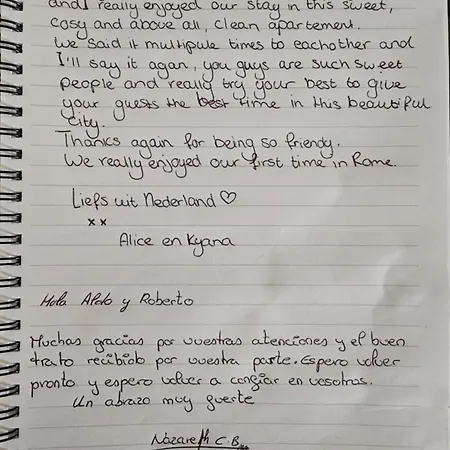 and I really enjoyed our stay in this sweet,
cosy and above all, clean apartement.
We said it multipule times to eachother and
I'll say it again, you guys are such sweet
people and really try your best to give
your guests the best time in this beautiful
city.
Thanks again for being so friendy.
We really enjoyed our first time in Rome.
Liefs uit Nederland ♡
x x
Alice en Kyana
Hola Aldo y Roberto
Muchas gracias por vuestras atenciones y el buen
trato recibido por vuestra parte. Espero volver
pronto y espero volver a confiar en vosotras.
Un abrazo muy fuerte
Nazareth C.B.